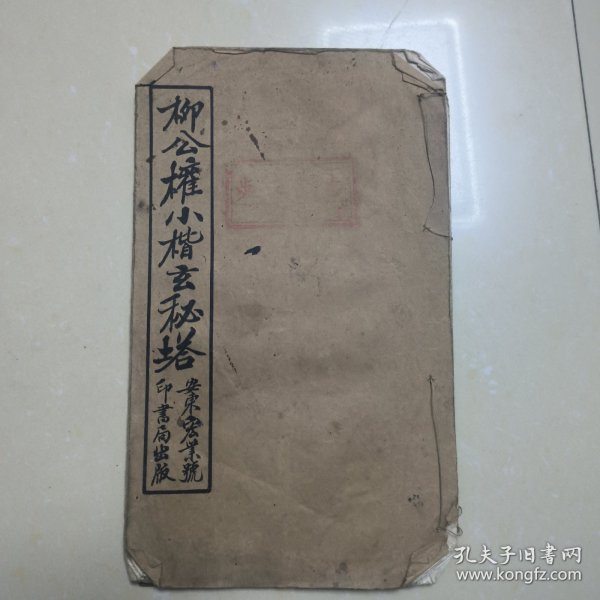 柳公權小楷玄秘塔
安東宏業號
印書局出版
孔夫子旧书网
www.kongfz.com